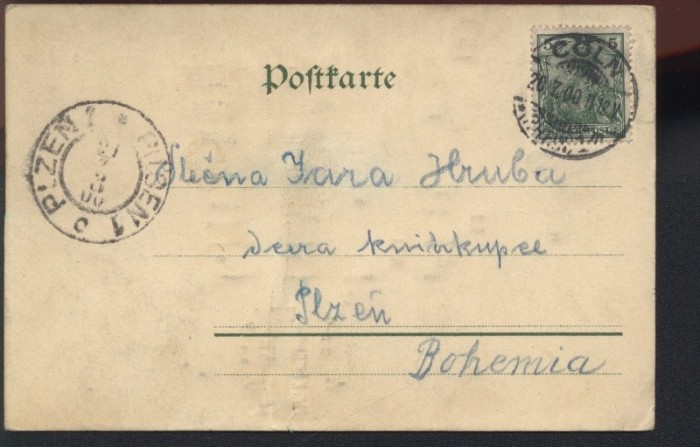 Postkarte
5
CÖLN
20.7.00
PLZEN 1
PILSEN 1
Slečna Jara Hruba
dcera knihkupce
Plzeň
Bohemia